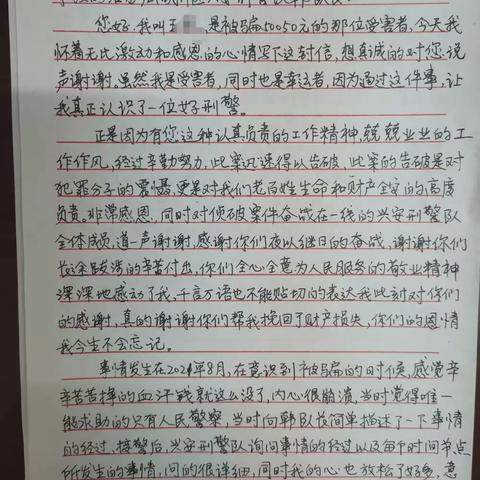 您好.我叫王 是被骗50050元的那位受害者,今天我
怀着无比激动和感恩的心情写下这封信,想真诚的对您说
声谢谢,虽然我是受害者,同时也是幸运者,因为通过这件事,让
我真正认识了一位好刑警。
正是因为有您这种认真负责的工作精神,兢兢业业的工
作作风,经过辛勤努力,此案迅速得以告破,此案的告破是对
犯罪分子的震慑,更是对我们老百姓生命和财产全安的高度
负责.非常感恩,同时对侦破案件奋战在一线的兴安刑警队
全体成员,道一声谢谢,感谢你们夜以继日的奋战,谢谢你们
长途跋涉的辛苦付出,你们全心全意为人民服务的敬业精神
深深地感动了我,千言万语也不能贴切的表达我此刻对你们
的感谢,真的谢谢你们帮我挽回了财产损失,你们的恩情
我今生不会忘记。
事情发生在2024年8月,在意识到被骗的时候,感觉辛
辛苦苦挣的血汗钱就这么没了,内心很崩溃,当时觉得唯一
能求助的只有人民警察,当时向韩队长简单描述了一下事情
的经过,接警后,兴安刑警队询问事情的经过以及每个时间节点
所发生的事情,问的很详细,同时我的心也放松了好多,意